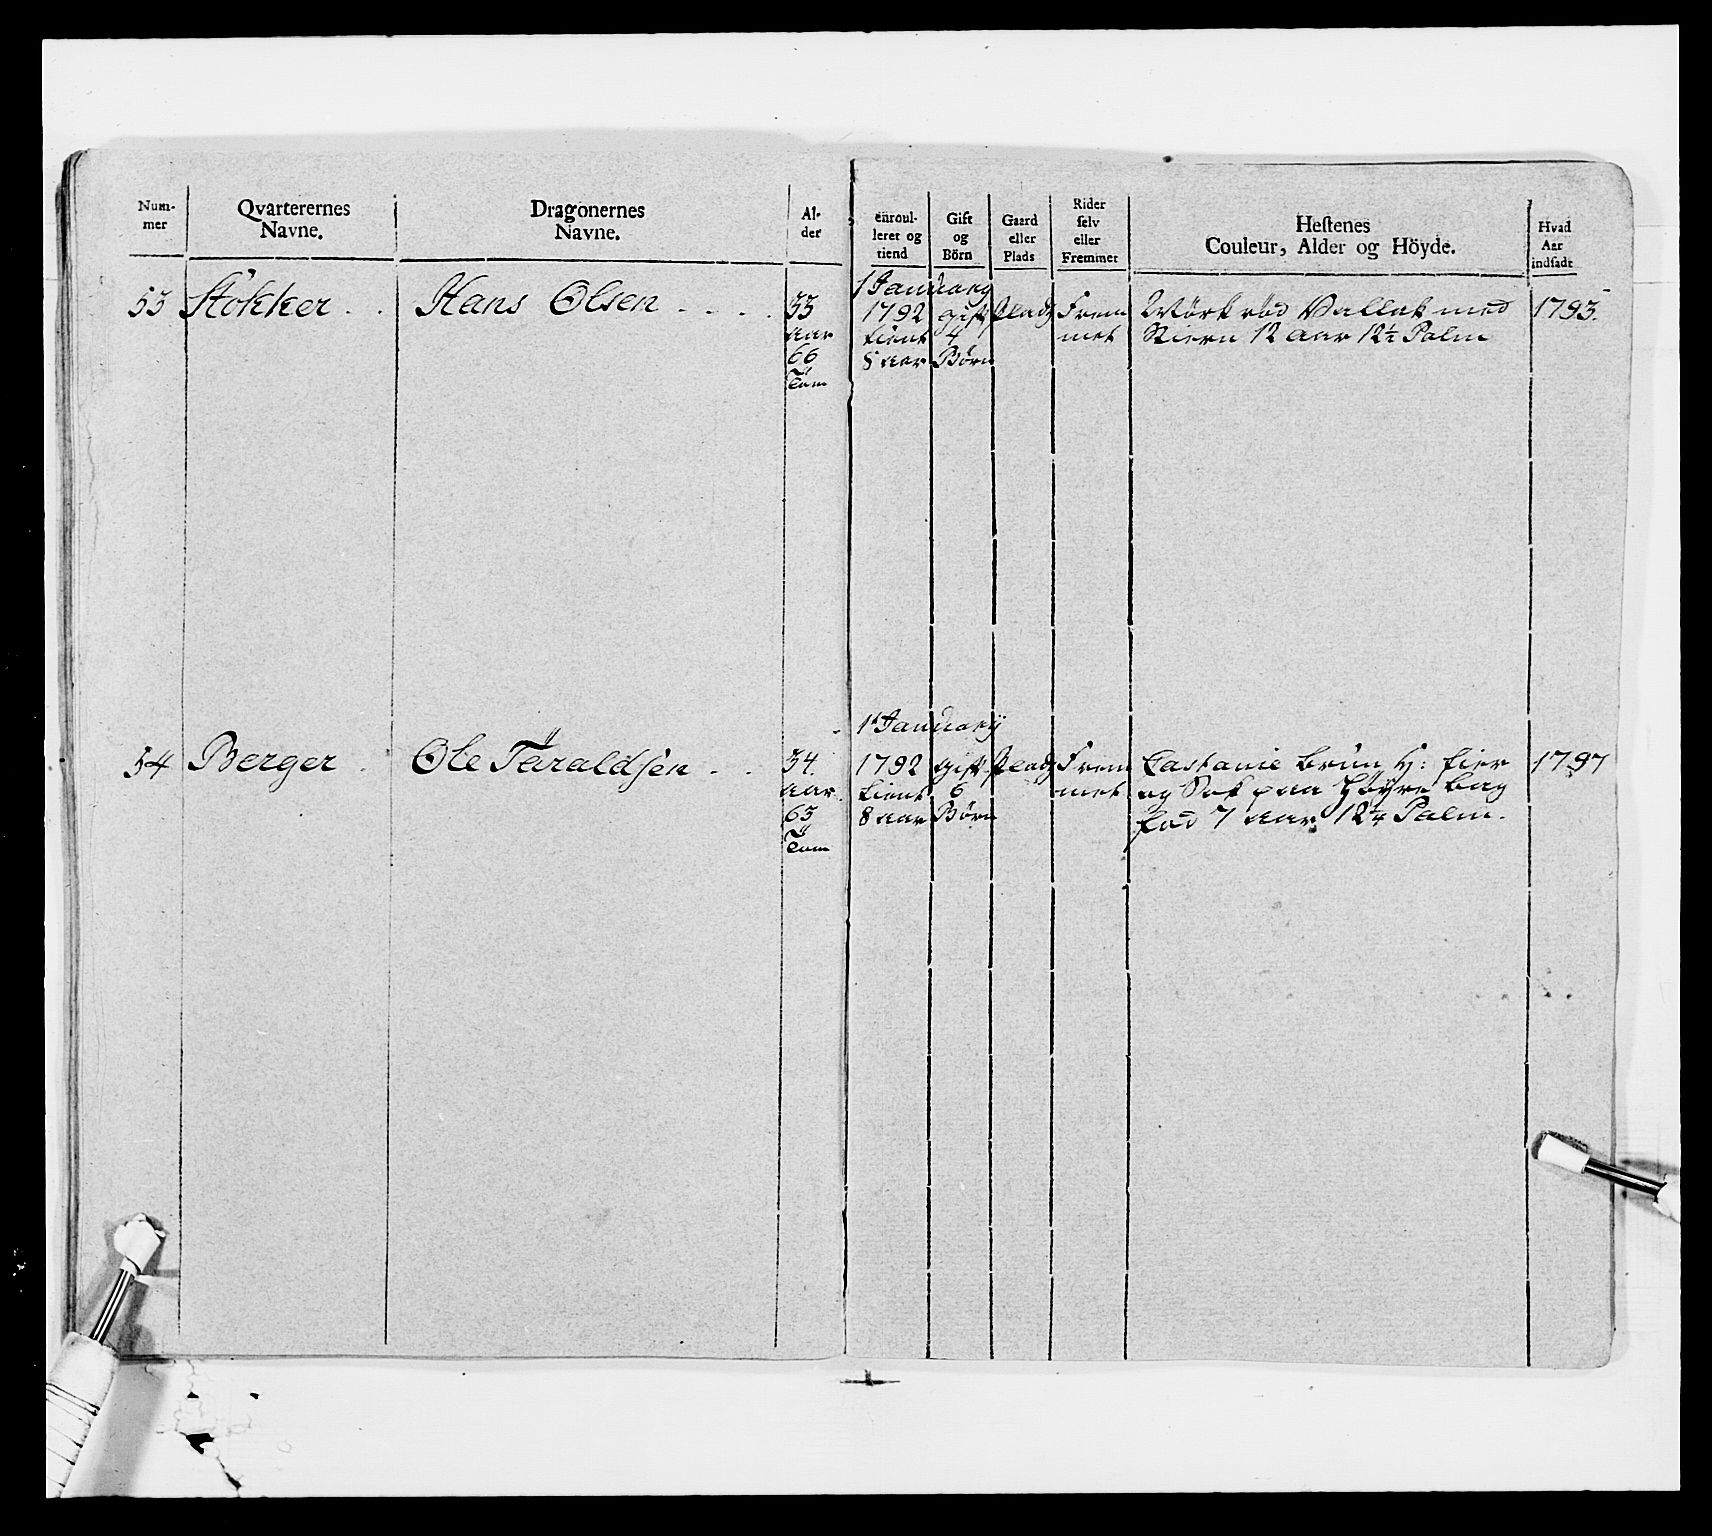 Num-
mer
Qvarterernes
Navne.
Dragonernes
Navne.
Al-
der
enroul-
leret og
tiend
Gift
og
Börn
Gaard
eller
Plads
Rider
selv
eller
Fremmet
Hestenes
Couleur, Alder og Höyde.
Hvad
Aar
indsadt
53 Stökker . . Hans Olsen . . . .
33
aar
66
Tom
1 January
1792
tient
8 aar
gift
4
Börn
Plads
Frem
met
Mörk röd Vallak med
Stiern 12 aar 12½ Palm
1793.
54 Berger . Ole Taraldsen . .
34.
aar.
63
Tom
1t January
1792
tient
8 aar
gift
6
Börn
Plads
Frem
met
Castanie brun H: tier
og Sok paa höyre bag
fod 7 aar 12¼ Palm.
1797